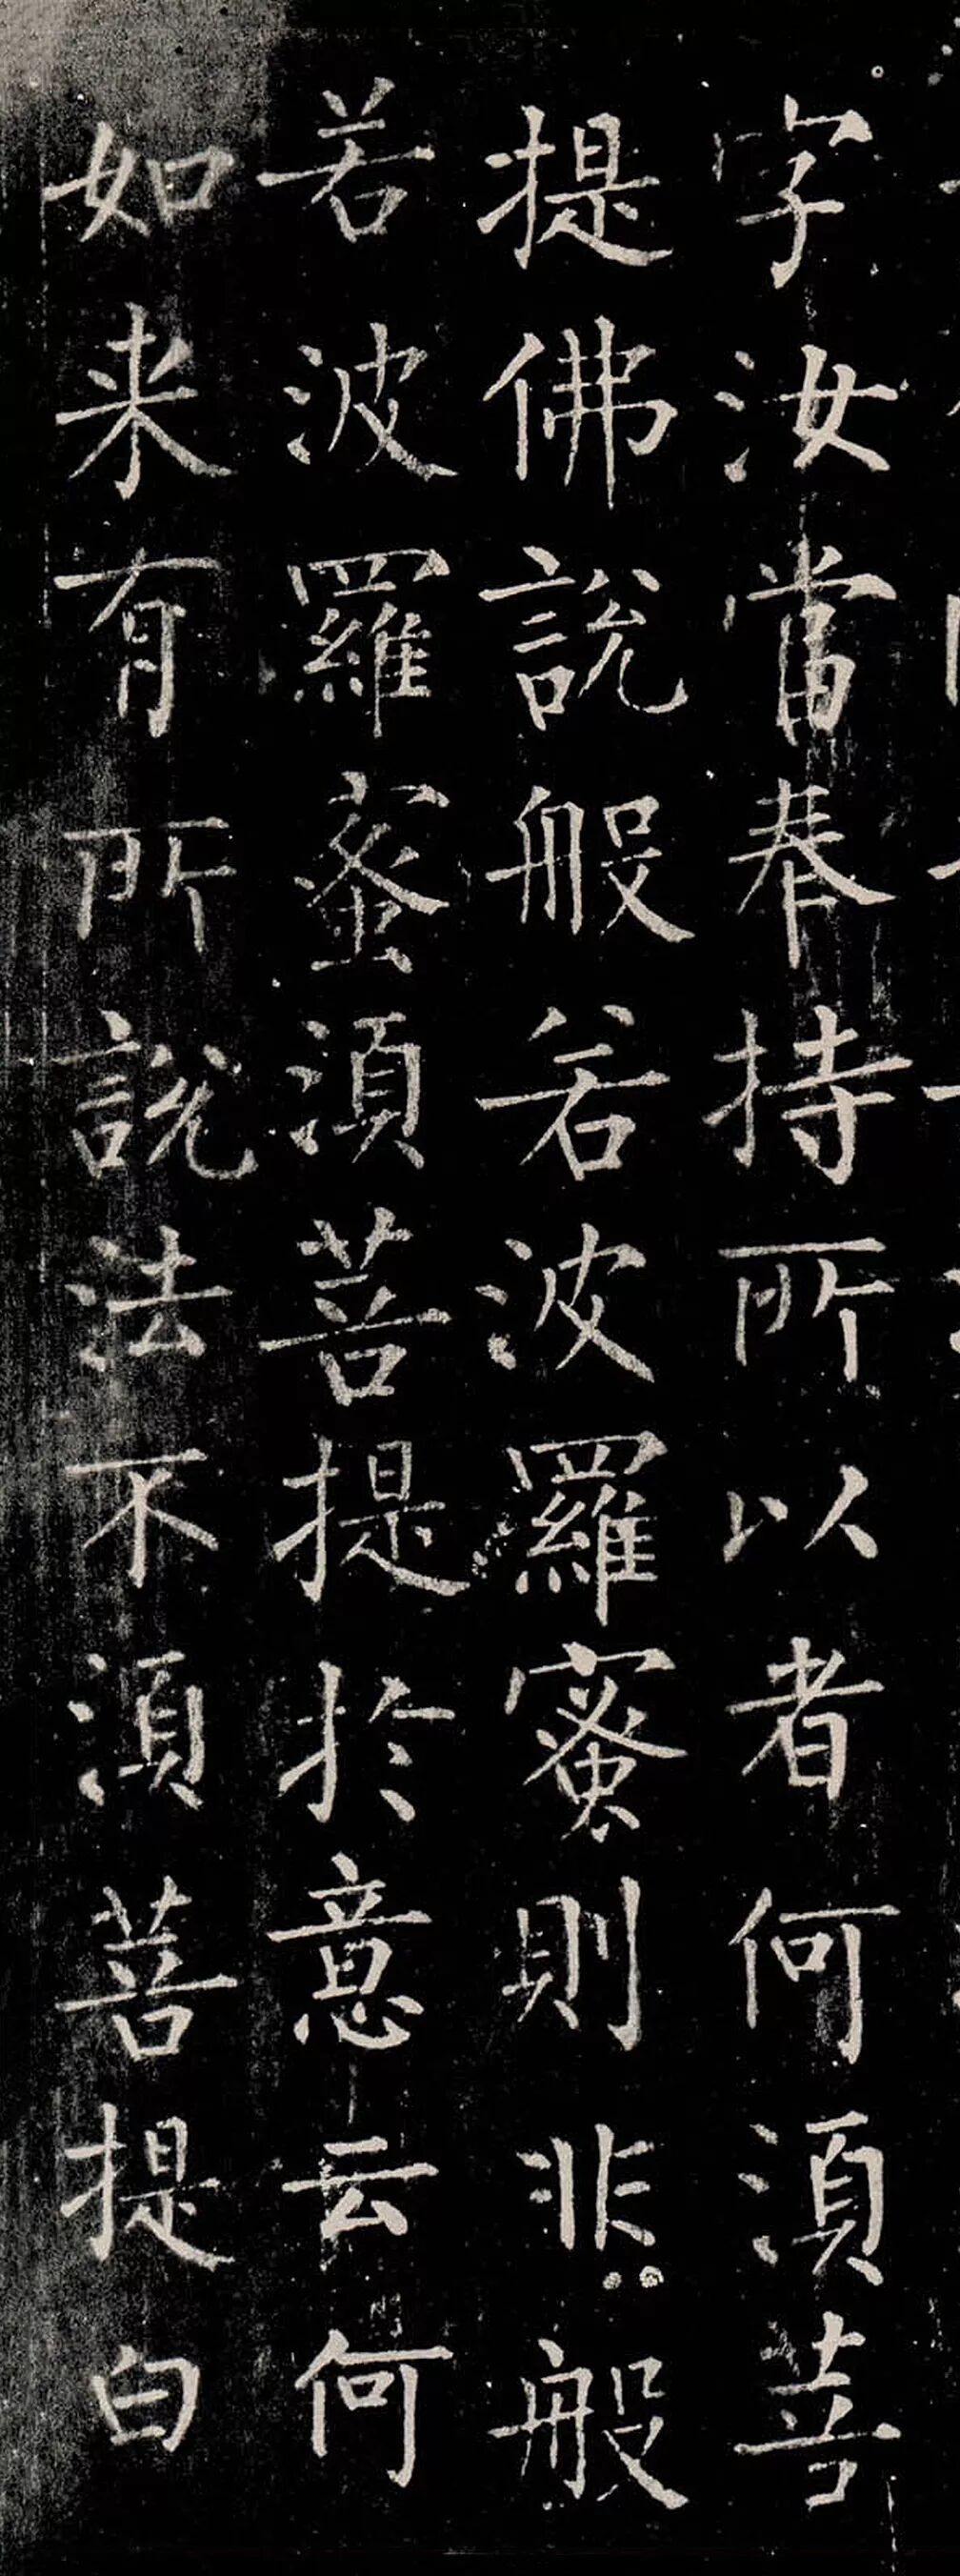 字汝當奉持所以者何須菩
提佛說般若波羅蜜則非般
若波羅蜜須菩提於意云何
如来有所說法不須菩提白